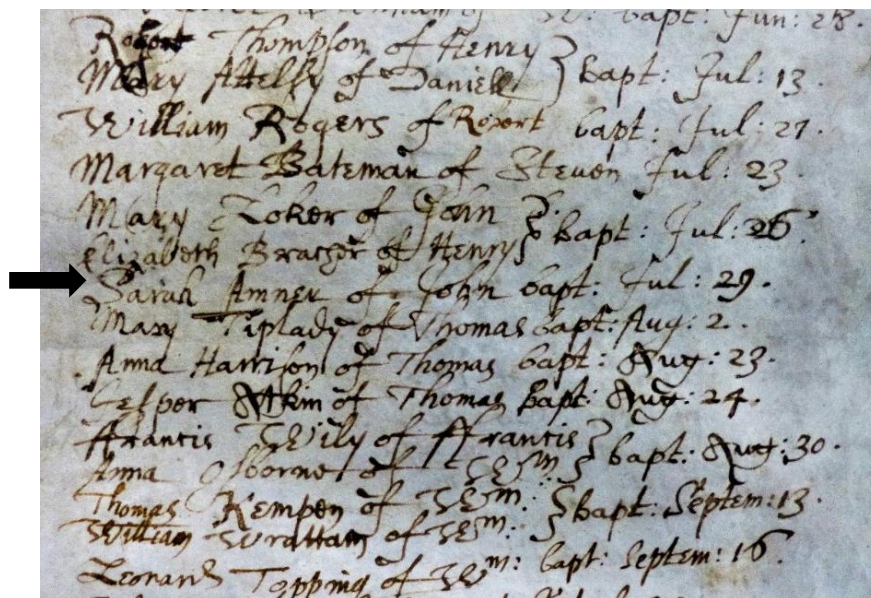 bapt: Jun: 28.
Robert Thompson of Henry
Mary of Daniell } bapt: Jul: 13.
William Rogers of Robert bapt: Jul: 21.
Margaret Bateman of Steven Jul: 23.
Mary Loker of John
Elizabeth of Henry } bapt: Jul: 26.
Sarah Amner of John bapt: Jul: 29.
Mary Tiplady of Thomas bapt: Aug: 2.
Anna Harrison of Thomas bapt: Aug: 23.
Jesper Atkin of Thomas bapt: Aug: 24.
ffrancis Wily of ffrancis
Anna Osborne of Wm } bapt: Aug: 30.
Thomas Kempen of Wm:
William Wrattam of Wm: } bapt: Septem: 13.
Leonard Topping of Wm: bapt: Septem: 16.